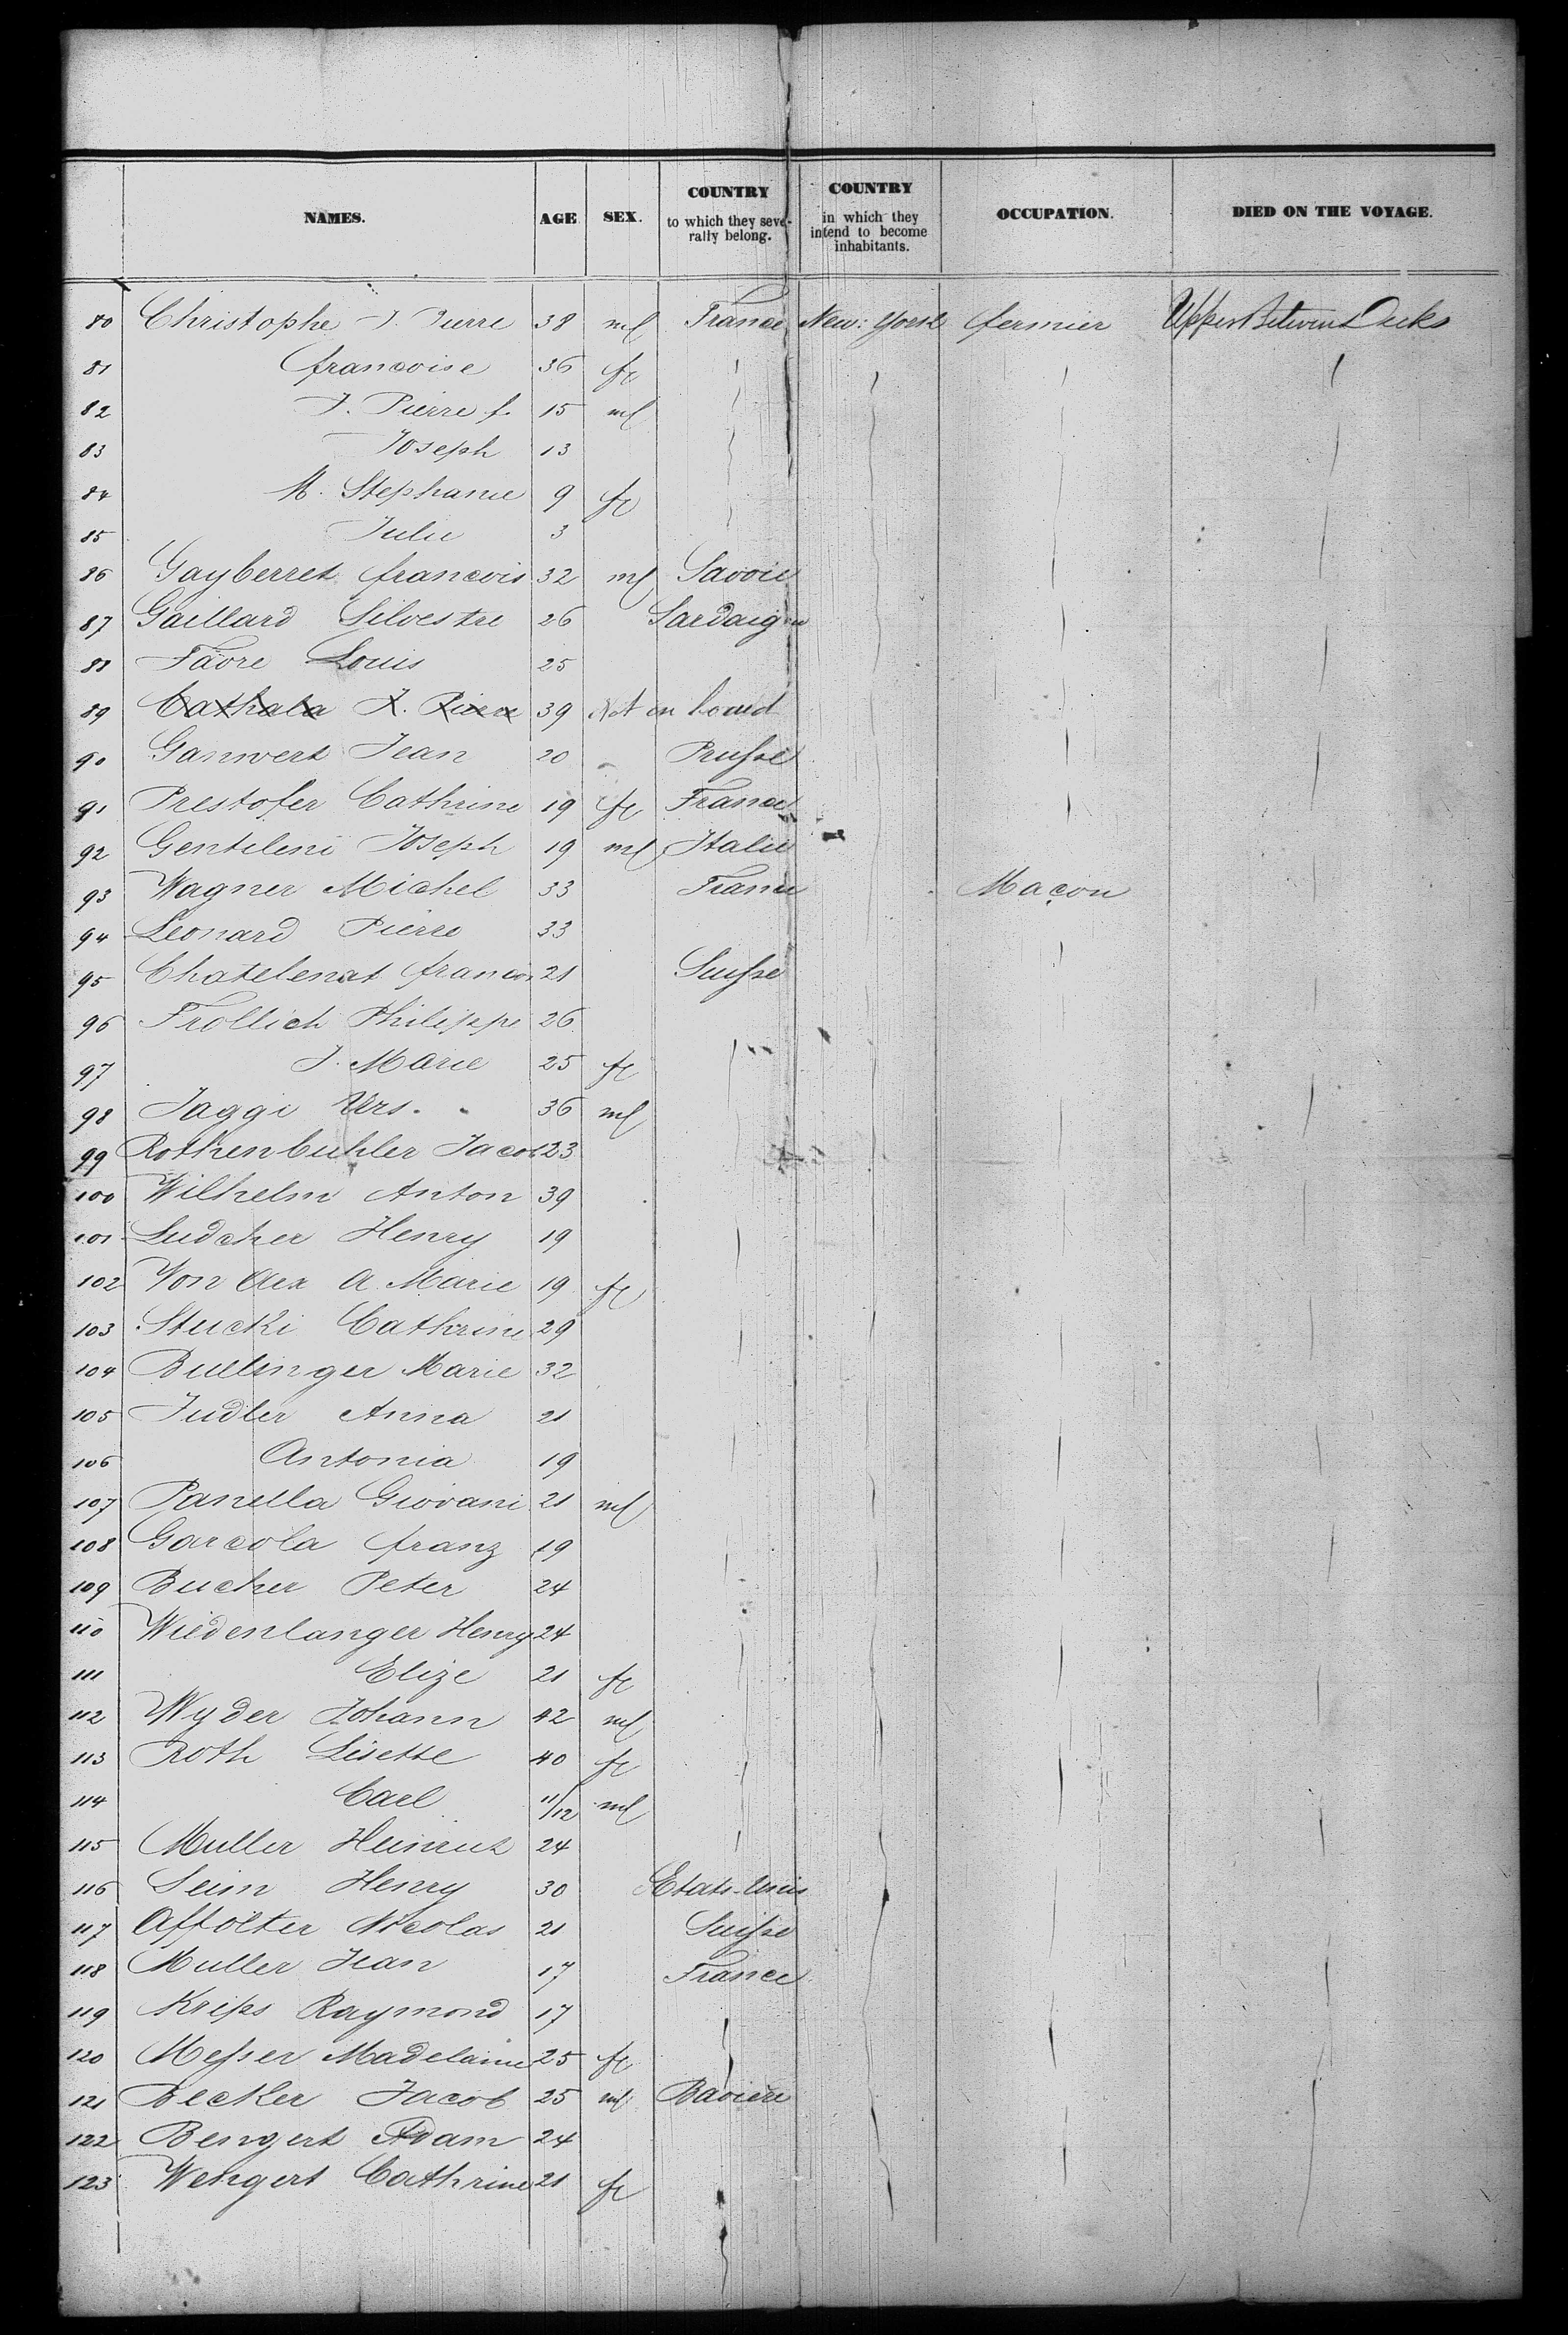 NAMES. AGE SEX. COUNTRY to which they seve- rally belong. COUNTRY in which they intend to become inhabitants. OCCUPATION. DIED ON THE VOYAGE.
80 Christophe J. Pierre 38 ml France New: York fermier Upper Between Decks
81 francoise 36 fe
82 J. Pierre f. 15 ml
83 Joseph 13
84 M. Stephanie 9 fe
85 Julie 3
86 Gayberret francois 32 ml Savoie
87 Gaillard Silvestre 26 Sardaigne
88 Favre Louis 25
89 Cathala J. Pierre 39 Not on board
90 Ganwert Jean 20 Prusse
91 Prestofer Cathrine 19 fe France
92 Gentileni Joseph 19 ml Italie
93 Wagner Michel 33 France Maçon
94 Leonard Pierre 33
95 Chatelenat francois 21 Suisse
96 Frollich Philippe 26
97 J. Marie 25 fe
98 Jaggi Urs. 36 ml
99 Rothenbuhler Jacob 23
100 Wilhelm Anton 39
101 Ludcher Henry 19
102 Von A. Marie 19 fe
103 Stucki Cathrine 29
104 Bullinger Marie 32
105 Judler Anna 21
106 Antonia 19
107 Panella Giovani 21 ml
108 Garcola franz 19
109 Bucher Peter 24
110 Wiedenlanger Henry 24
111 Elize 21 fe
112 Wyder Johann 42 ml
113 Roth Lisette 40 fe
114 Carl 11/12 ml
115 Muller Heinrich 24
116 Seim Henry 30 Etats-Unis
117 Affolter Nicolas 21 Suisse
118 Muller Jean 17 France
119 Krips Raymond 17
120 Messer Madelaine 25 fe
121 Becker Jacob 25 ml Baviere
122 Bengert Adam 24
123 Wengert Cathrine 21 fe